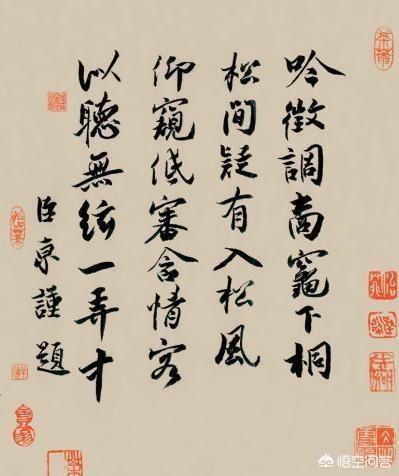 吟徵調商竈下桐
松間疑有入松風
仰窺低審含情客
似聽無絃一弄中
臣京謹題
悟空问答